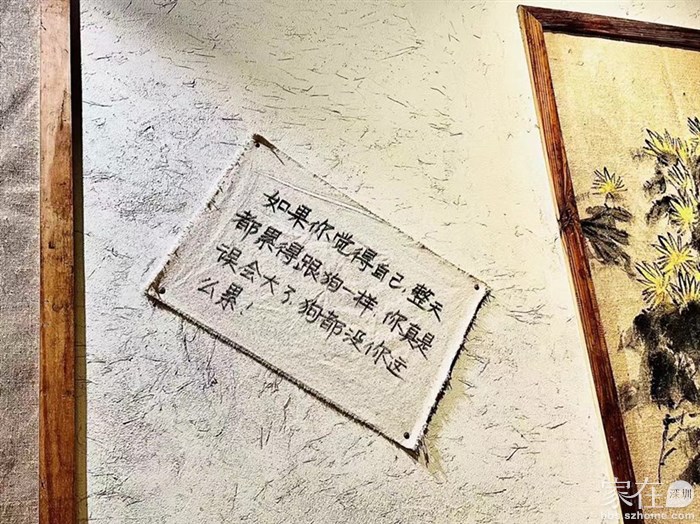 如果你觉得自己 整天
都累得跟狗一样 你真是
误会大了 狗都没你这
么累！
家在深圳
hot.szhome.com